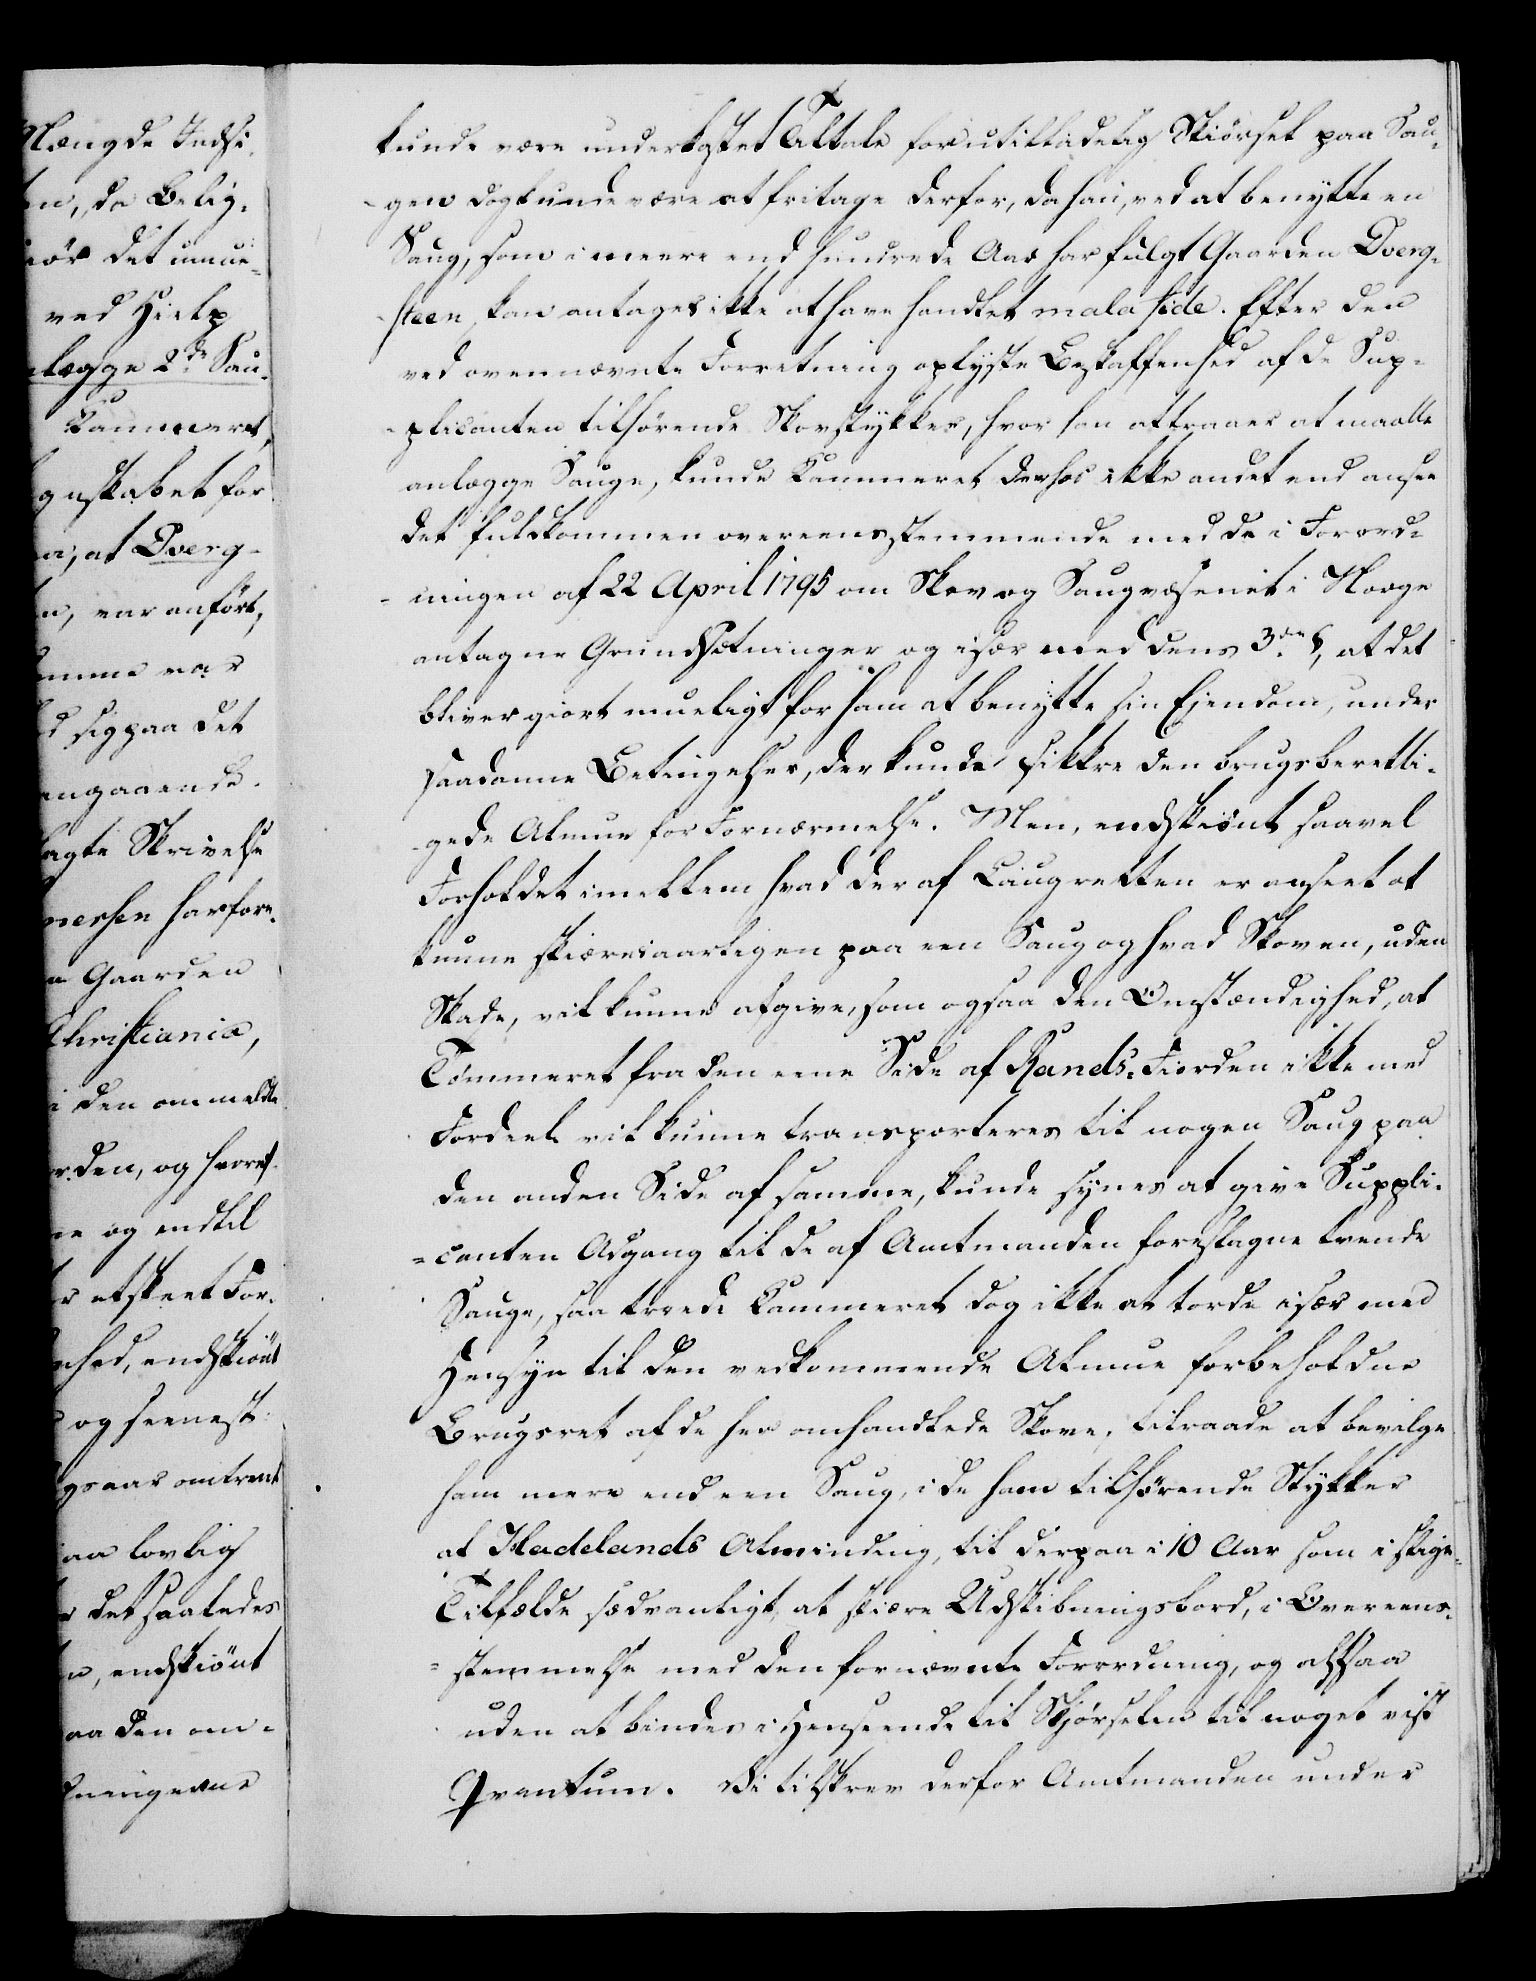 Mængde Indsi-
en, da Belig-
giör det umue-
ved Hielp
lægge 2de Sau-
Kammeret,
genskabet for
a, at Dverg-
n, var anført,
amme var
d sig paa det
angaaende
lagte Skrivelse
nersen har fore-
n Gaarden
Christiania,
i den ommeldte
rden, og hvoref-
ne og endtil
r etskeet For-
nhed, endskiönt
og seenest
gsaar omtrent
aa lovlig
r det saaledes
n, endskiönt
aa den om-
ningerne
kunde være underkastet Tiltale for utilladelig Skiörsel paa Sau-
-gen dog kunde være at fritage derfor, da han, ved at benytte en
Saug, som i meere end hundrede Aar har fulgt Gaarden Dverg-
-steen, kan antages ikke at have handlet mala fide. Efter den
ved ovennævnte Forretning oplyste Beskaffenhed af de Sup-
-plicanten tilhørende Skovstykker, hvor han attraaer at maatte
anlægge Sauge, kunde Kammeret derhos ikke andet end ansee
det fuldkommen overeensstemmende med de i Forord-
-ningen af 22 April 1795 om Skov og Saugvæsenet i Norge
antagne Grundsætninger og især med dens 3die §, at det
bliver giort mueligt for ham at benytte sin Ejendom, under
saadanne Betingelser, der kunde sikkre den brugsberetti-
-gede Almue for Fornærmelse. Men, endskiönt saavel
Forholdet imellem hvad der af Laugretten er anseet at
kunne skiæres aarligen paa een Saug og hvad Skoven, uden
Skade, vil kunne afgive, som ogsaa den Omstændighed, at
Tömmeret fra den eene Side af Rands-Fiorden ikke med
Fordeel vil kunne transporteres til nogen Saug paa
den anden Side af samme, kunde synes at give Suppli-
-canten Adgang til de af Amtmanden foreslagne tvende
Sauge, saa troede Kammeret dog ikke at torde især med
Hensyn til den vedkommende Almue forbeholdne
Brugsret af de her omhandlede Skove, tilraade at bevilge
ham mere end een Saug, i de ham tilhørende Stykker
af Hadelands Alminding, til derpaa i 10 Aar som i slige
Tilfælde sædvanligt, at skiære Udskibningsbord, i Overeens-
-stemmelse med den fornævnte Forordning, og altsaa
uden at bindes i Henseende til Skjörselen til noget vist
Qvantum. Vi tilskrev derfor Amtmanden under